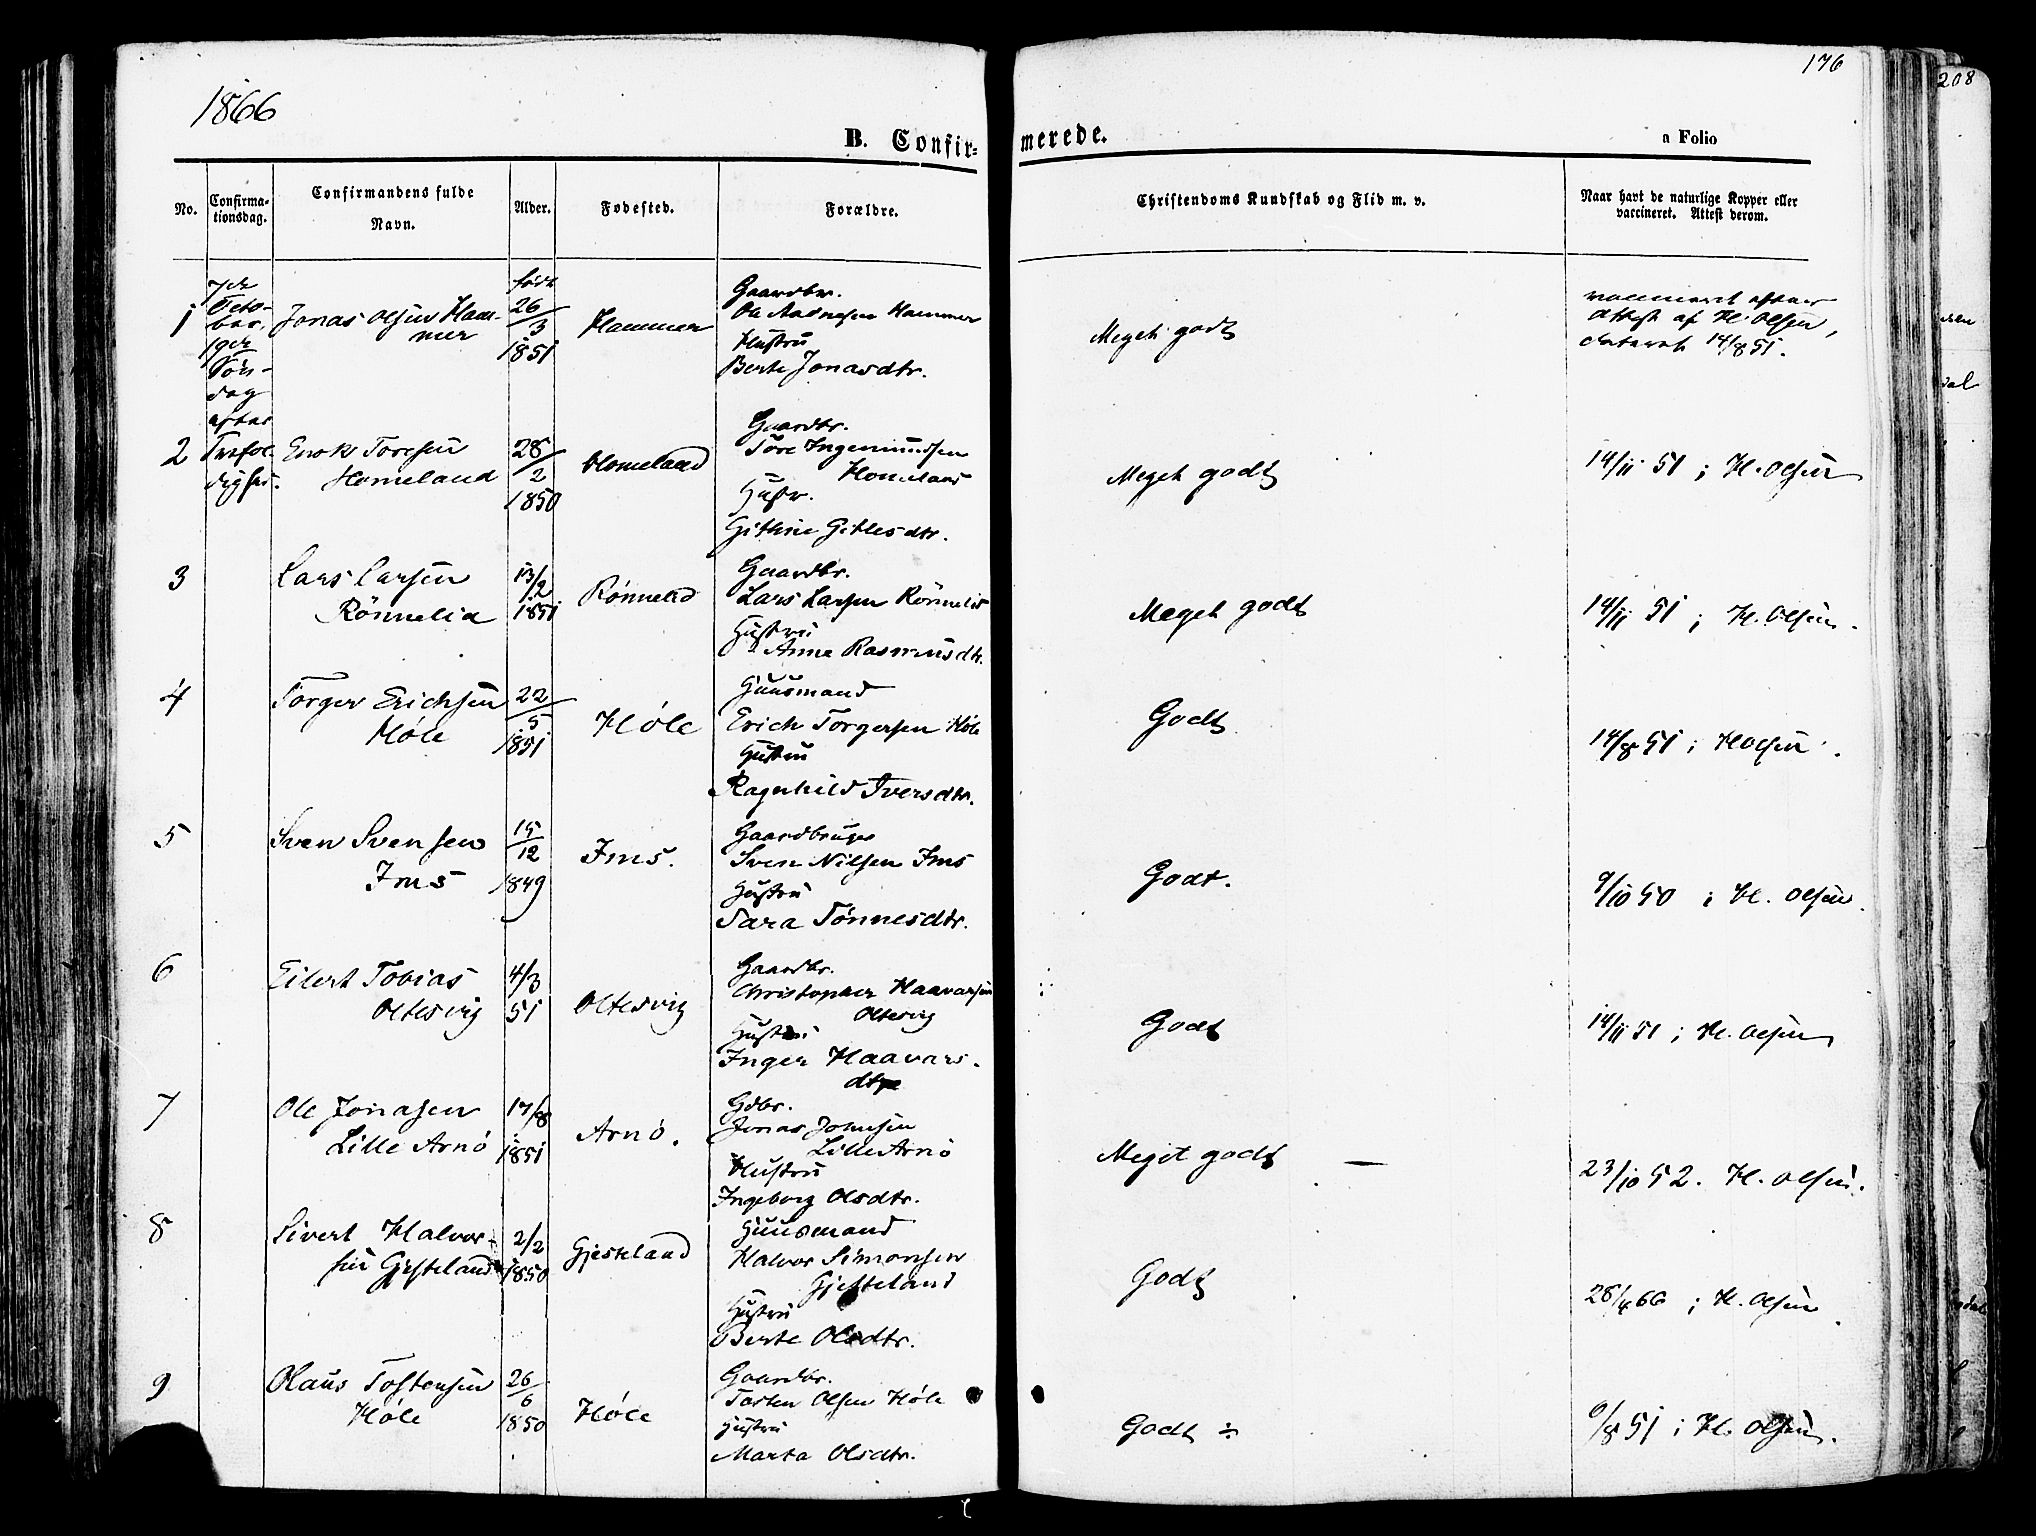 1866
176
208
B. Confir-
merede.
a Folio
No.
Confirma-
tionsdag.
Confirmandens fulde
Navn.
Alder.
Fødested.
Forældre.
Christendoms Kundskab og Flid m. v.
Naar havt de naturlige Kopper eller
vaccineret. Attest derom.
1
7de
Octo-
ber.
19de
Søn-
dag
efter
Trefol-
dighed.
Jonas Olsen Ham-
mer
født
26/3
1851
Hammer
Gaardbr.
Ole Aadnesen Hammer
Hustru
Berte Jonasdtr.
Meget godt
vaccineret efter
Attest af H. Olsen,
dateret 14/8 51.
2
Enok Toresen
Homeland
28/2
1850
Homeland
Gaardbr.
Tore Ingemundsen
Homeland
Hustr.
Githrie Gitlesdtr.
Meget godt
14/11 51 ; H. Olsen
3
Lars Larsen
Rönnelid
13/2
1851
Rønnelid
Gaardbr.
Lars Larsen Rönnelid
Hustru
Anna Rasmusdtr.
Meget godt
14/11 51 ; H. Olsen.
4
Torger Erichsen
Høle
22/5
1851
Høle
Huusmand
Erich Torgersen Høle
Hustru
Ragnhild Iversdtr.
Godt
14/8 51 ; H Olsen.
5
Sven Svensen
Ims
15/12
1849
Ims.
Gaardbruger
Sven Nilsen Ims
Hustru
Sara Tönnesdtr.
Godt.
9/10 50 ; H. Olsen.
6
Eilert Tobias
Oltesvig
4/3
51
Oltesvig
Gaardbr.
Christopher Haavarsen
Oltesvig
Hustru
Inger Haavars-
dtr
Godt
14/11 51 ; H. Olsen
7
Ole Jonasen
Lille Arnö
17/8
1851
Arnö.
Gdbr.
Jonas Johnsen
Lille Arnö
Hustru
Ingeborg Olsdtr.
Meget godt —
23/10 52. H. Olsen.
8
Sivert Halvor-
sen Gjesteland
2/2
1850
Gjesteland
Huusmand
Halvor Simonsen
Gjesteland
Hustru
Berte Olsdtr.
Godt
28/4 66 ; H. Olsen.
9
Olaus Tostensen
Høle
26/6
1850
Høle
Gaardbr.
Tosten Olsen Høle
Hustru
Marta Olsdtr.
Godt ÷
6/8 51 ; H. Olsen.